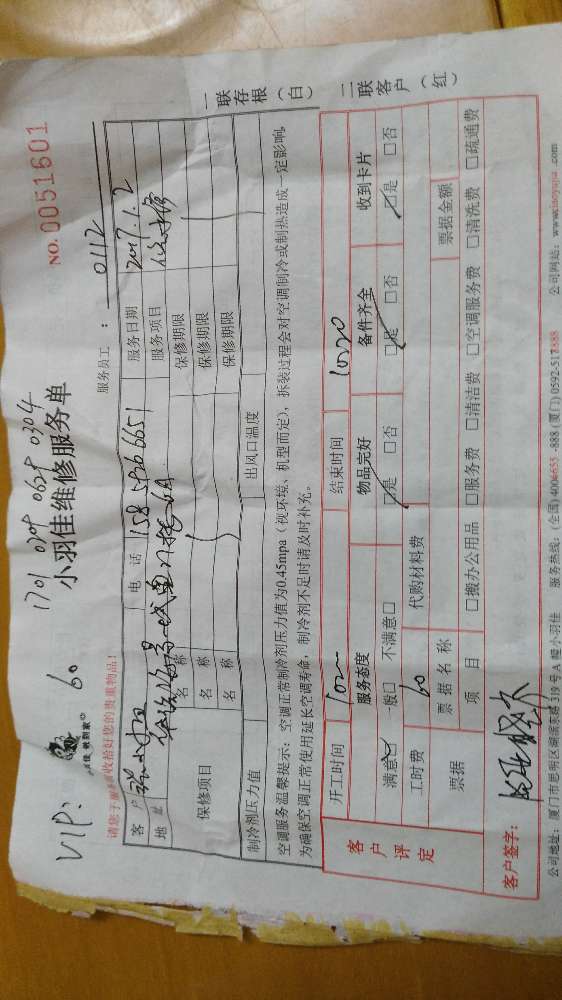 VIP: 60
1701 0201 0624 0304
NO.0051601
小羽佳维修服务单
请您于 收拾好您的贵重物品!
服务员工: 0112
客户 电话 158 服务日期 2017.1.2
地址 服务项目
保修项目 名称 保修期限
名称 保修期限
名称 保修期限
制冷剂压力值 出风口温度
空调服务温馨提示:空调正常制冷剂压力值为0.45mpa(视环境、机型而定),拆装过程会对空调制冷或制热造成一定影响,
为确保空调正常使用延长空调寿命,制冷剂不足时请及时补充。
一联存根(白)
二联客户(红)
客户评定
开工时间 结束时间 1020
服务态度 物品完好 备件齐全 收到卡片
满意☑ 一般□ 不满意□ ☑是 □否 ☑是 □否 ☑是 □否
工时费 60 代购材料费
票据 票据名称 票据金额
项目 □搬办公用品 □服务费 □清洁费 □空调服务费 □清洗费 □疏通费
客户签字:
公司地址:厦门市思明区湖滨东路319号A幢小羽佳 服务热线:(全国)4006655-888(厦门)0592-517 888 公司网站:www.xiaoyujia.com